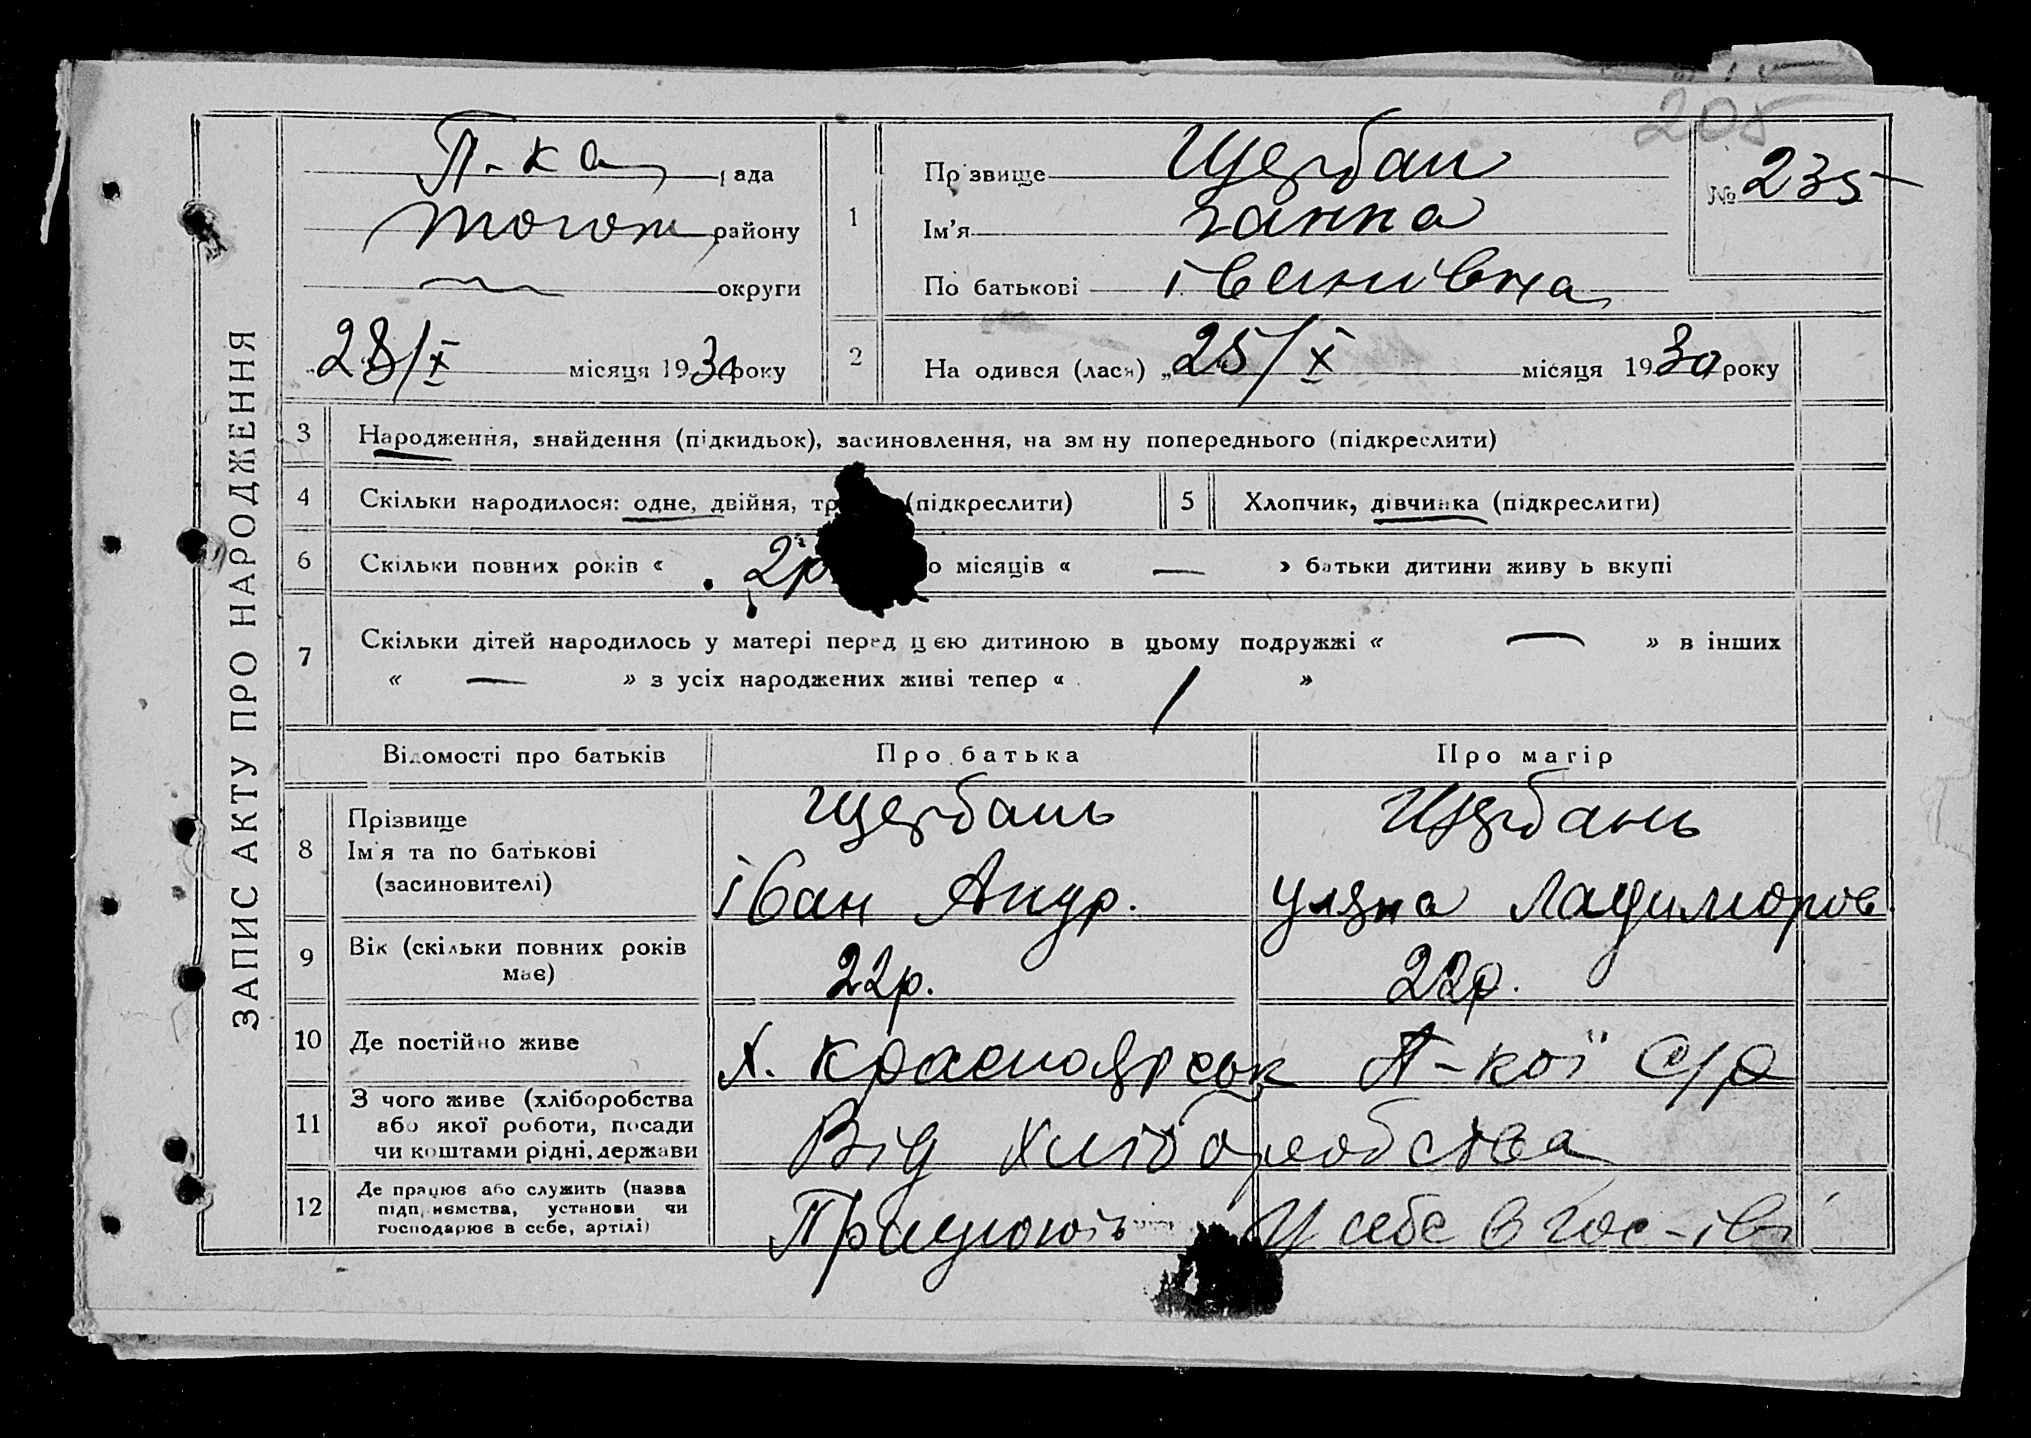 205
ЗАПИС АКТУ ПРО НАРОДЖЕННЯ
П-ка рада
району
округи
28/X місяця 1930 року
1
Прізвище Щербан
Ім'я Ганна
По батькові Іванівна
№ 235
2
На одився (лася) „25/X місяця 1930 року
3 Народження, знайдення (підкидьок), засиновлення, на зм ну попереднього (підкреслити)
4 Скільки народилося: одне, двійня, тр (підкреслити)
5 Хлопчик, дівчинка (підкреслити)
6 Скільки повних років « 2р о місяців « — » батьки дитини живу ь вкупі
7 Скільки дітей народилось у матері перед цією дитиною в цьому подружжі « — » в інших
« — » з усіх народжених живі тепер « 1 »
Відомості про батьків
Про батька
Про матір
8
Прізвище
Ім'я та по батькові
(засиновителі)
Щербань
Іван Андр.
Щербань
Уляна
9
Вік (скільки повних років
має)
22р.
22р.
10 Де постійно живе
х. Красноярськ П-кої с/р
11
З чого живе (хліборобства
або якої роботи, посади
чи коштами рідні, держави
Від хліборобства
12
Де працює або служить (назва
підп иємства, установи чи
господарює в себе, артілі)
Працюють У себе в гос-іві